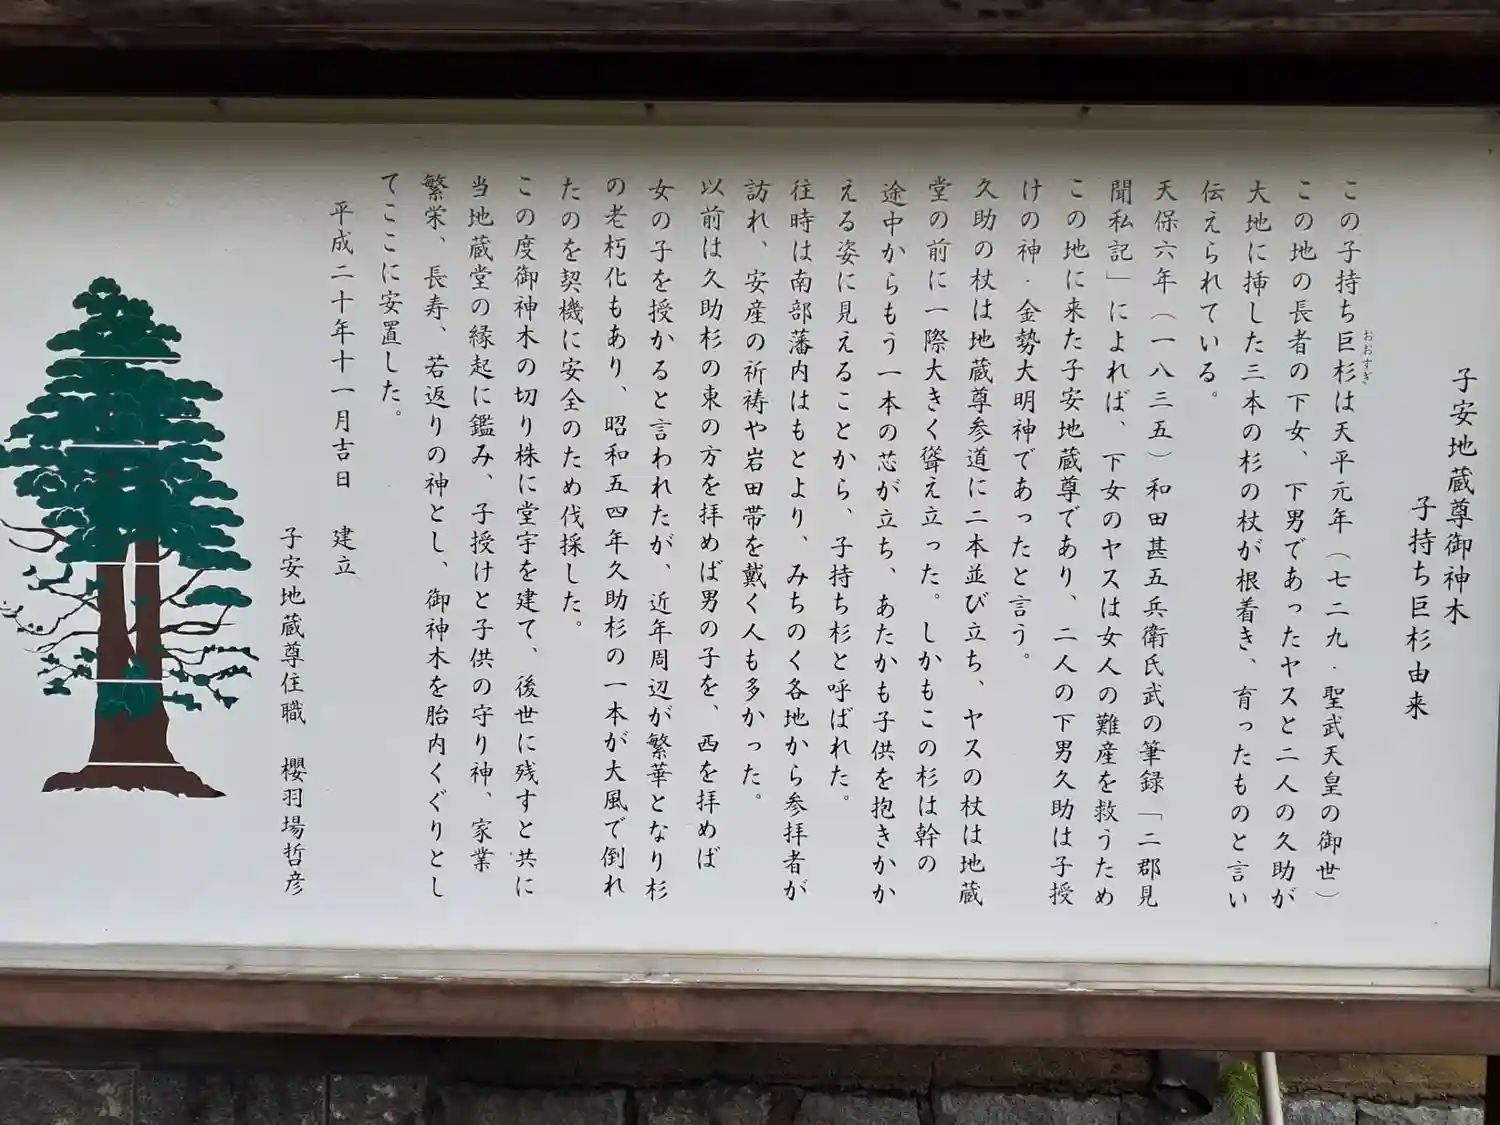 子安地蔵尊御神木
子持ち巨杉由来
この子持ち巨杉は天平元年（七二九．聖武天皇の御世）
おおすぎ
この地の長者の下女、下男であったヤスと二人の久助が
大地に挿した三本の杉の杖が根着き、育ったものと言い
伝えられている。
天保六年（一八三五）和田甚五兵衛氏武の筆録「二郡見
聞私記」によれば、下女のヤスは女人の難産を救うため
この地に来た子安地蔵尊であり、二人の下男久助は子授
けの神．金勢大明神であったと言う。
久助の杖は地蔵尊参道に二本並び立ち、ヤスの杖は地蔵
堂の前に一際大きく聳え立った。しかもこの杉は幹の
途中からもう一本の芯が立ち、あたかも子供を抱きかか
える姿に見えることから、子持ち杉と呼ばれた。
往時は南部藩内はもとより、みちのく各地から参拝者が
訪れ、安産の祈祷や岩田帯を戴く人も多かった。
以前は久助杉の東の方を拝めば男の子を、西を拝めば
女の子を授かると言われたが、近年周辺が繁華となり杉
の老朽化もあり、昭和五四年久助杉の一本が大風で倒れ
たのを契機に安全のため伐採した。
この度御神木の切り株に堂宇を建て、後世に残すと共に
当地蔵堂の縁起に鑑み、子授けと子供の守り神、家業
繁栄、長寿、若返りの神とし、御神木を胎内くぐりとし
てここに安置した。
平成二十年十一月吉日　建立
子安地蔵尊住職　櫻羽場哲彦